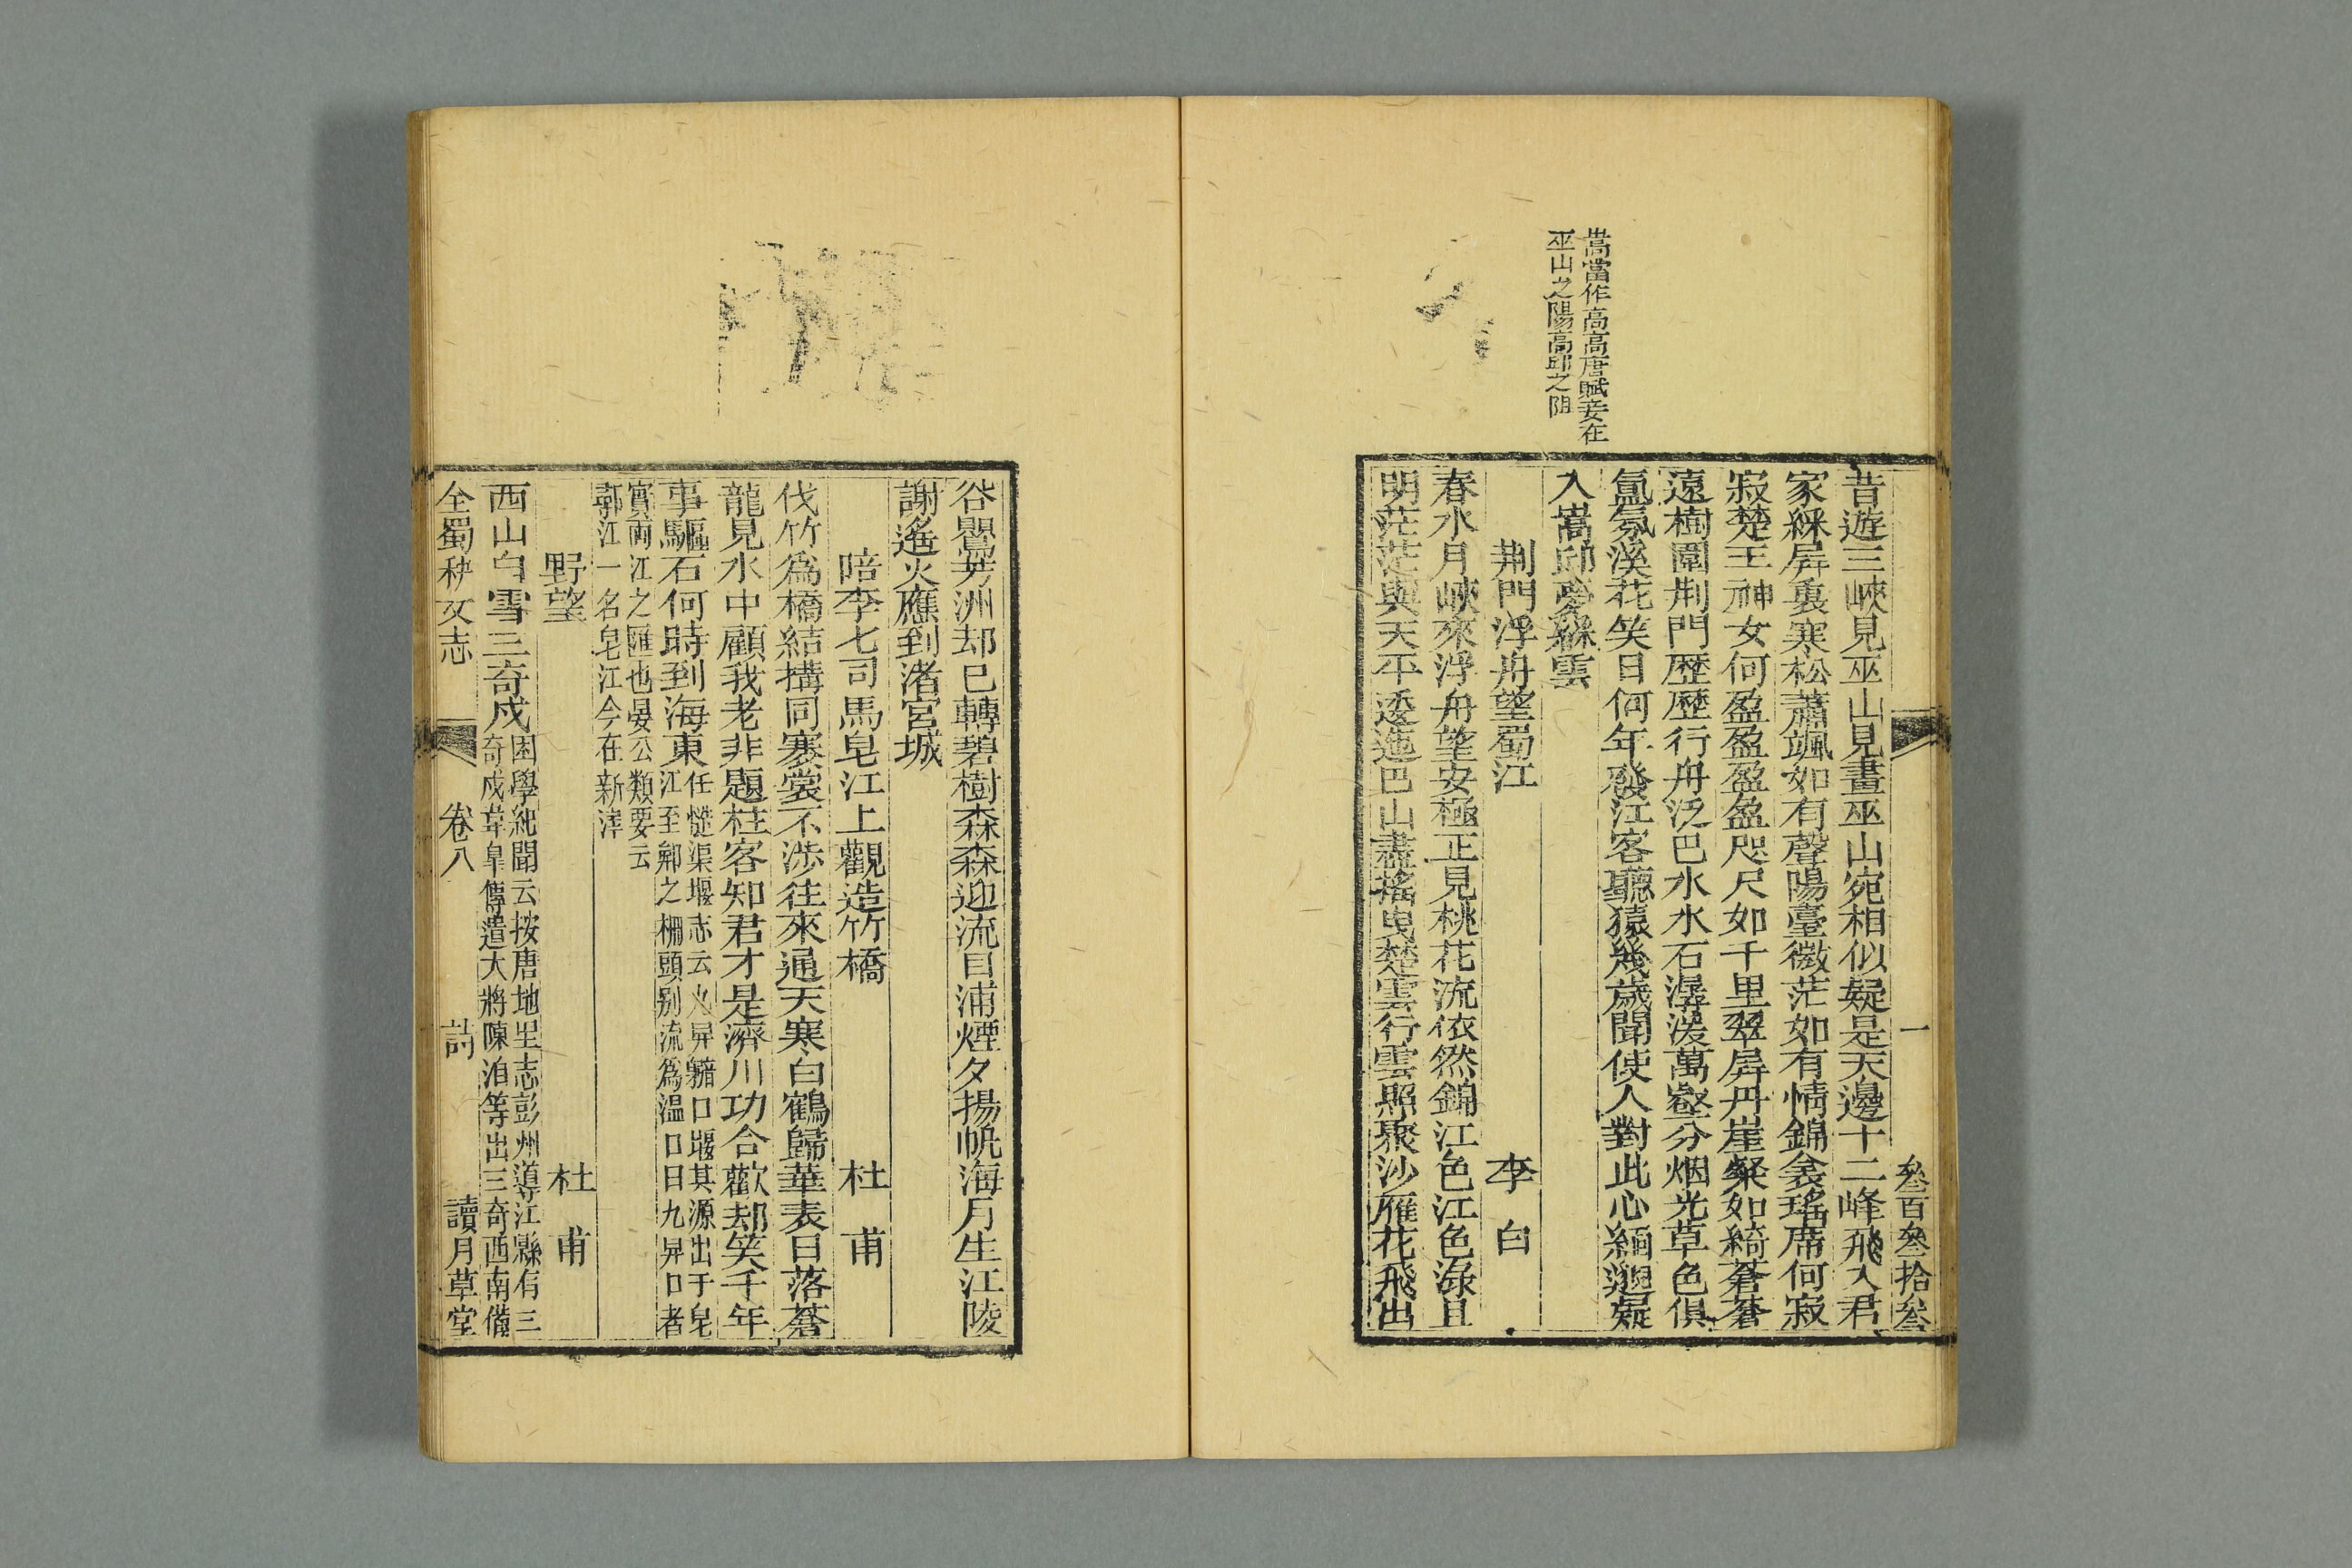 一 叁百叁拾叁
嵩當作高高唐賦妾在
巫山之陽高邱之阻
昔遊三峽見巫山見畫巫山宛相似疑是天邊十二峰飛入君
家綵屏裏寒松蕭颯如有聲陽臺微茫如有情錦衾瑤席何寂
寂楚王神女何盈盈盈盈咫尺如千里翠屏丹崖粲如綺蒼蒼
遠樹圍荆門歷歷行舟泛巴水水石潺湲萬壑分烟光草色俱
氤氛溪花笑日何年發江客聽猿幾歲聞使人對此心緬邈疑
入嵩邱夢綵雲
荆門浮舟望蜀江 李白
春水月峽來浮舟望安極正見桃花流依然錦江色江色淥且
明茫茫與天平逶迤巴山盡搖曳楚雲行雲照聚沙雁花飛出
谷鸎芳洲却已轉碧樹森森迎流目浦煙夕揚帆海月生江陵
謝遙火應到渚宮城
陪李七司馬皂江上觀造竹橋 杜甫
伐竹爲橋結搆同褰裳不涉往來通天寒白鶴歸華表日落蒼
龍見水中顧我老非題柱客知君才是濟川功合歡却笑千年
事驅石何時到海東
任 渠堰志云 昇 口堰其源出于皂
江至郫之栅頭别流爲溫口曰九昇口者
實兩江之匯也晏公類要云
鄩江一名皂江今在新津
野望 杜甫
西山白雪三奇戍
困學紀聞云按唐地里志彭州導江縣有三
奇戍韋皐傳遣大將陳洎等出三奇西南備
全蜀秇文志 卷八 詩 讀月草堂